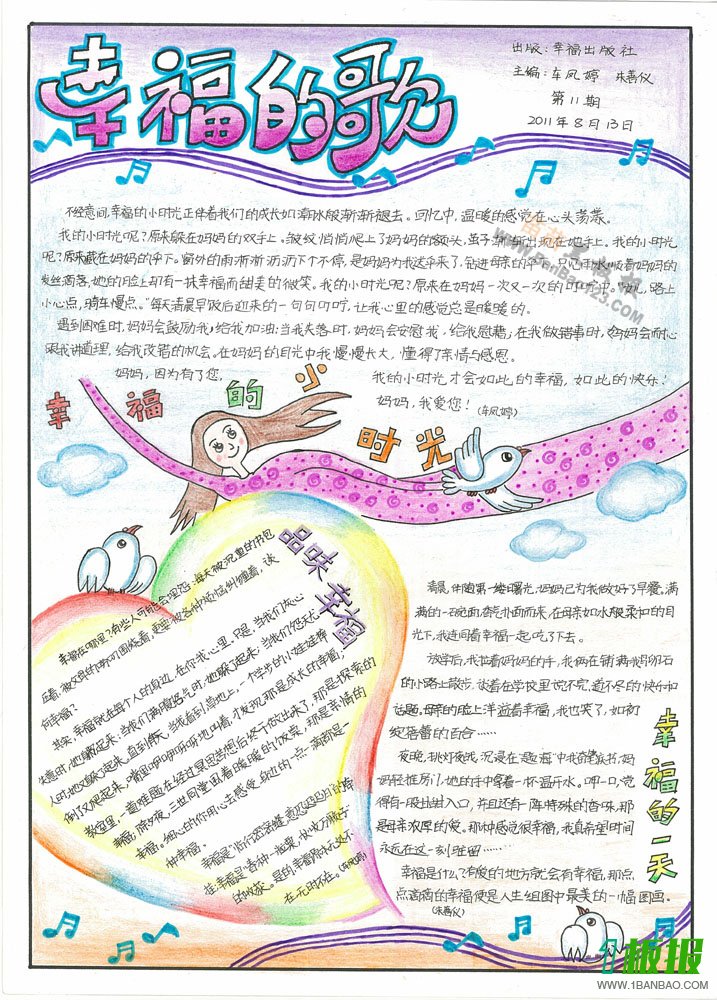 幸福的歌
出版：幸福出版社
主编：车凤婷 朱善仪
第11期
2011年8月13日
不经意间，幸福的小时光正伴着我们的成长如潮水般渐渐褪去。回忆中，温暖的感觉在心头荡漾。
我的小时光呢？原来躲在妈妈的双手上。皱纹悄悄爬上了妈妈的额头，茧子渐渐出现在她手上。我的小时光
呢？原来藏在妈妈的伞下。窗外的雨淅淅沥沥下个不停，是妈妈为我送伞来了，钻进母亲的伞下，只见雨水顺着妈妈的
发丝滴落，她的脸上却有一抹幸福而甜美的微笑。我的小时光呢？原来在妈妈一次又一次的叮咛中。路上
小心点，骑车慢点。"每天清晨早饭后迎来的一句句叮咛，让我心里的感觉总是暖暖的。
遇到困难时，妈妈会鼓励我，给我加油；当我失落时，妈妈会安慰我，给我慰藉；在我做错事时，妈妈会耐心
跟我讲道理，给我改错的机会。在妈妈的目光中我慢慢长大，懂得了亲情与感恩。
妈妈，因为有了您，我的小时光才会如此的幸福，如此的快乐！
妈妈，我爱您！（车凤婷）
幸福的小时光
品味幸福
幸福在哪里？有些人可能会埋怨：每天被沉重的书包
压着，被父母的唠叨围绕着，更要被各种烦恼纠缠着，谈
何幸福？
其实，幸福就在每个人的身边，在你我心里。只是，当我们灰心
失意时，它躲起来；当我们满腹怒气时，它躲了起来；当我们怨天尤
人时，它又躲了起来。直到伟大，当我看到草地上，一个学步的小娃娃摔
倒了又爬起来，嘴里呵呵呵地叫着，才发现那是成长的幸福；
教室里，一道难题在经过冥思苦想后终于做出来了，那是探索的
幸福；除夕夜，三世同堂围着暖暖的饭桌，那是亲情的
幸福。细心的你用心去感受身边的一点一滴都是一
种幸福。
的收获。是的，幸福原本无处不
在，无时不在。（车凤婷）
清晨，伴随第一缕曙光，妈妈已为我做好了早餐，满
满的一碗面，香气扑面而来，在母亲如水般柔和的目
光下，我连同着幸福一起吃了下去。
放学后，我拉着妈妈的手，我俩在铺满鹅卵石
的小路上散步，谈着在学校里说不完，道不尽的快乐和
话题，母亲的脸上洋溢着幸福，我也笑了，如初
绽蓓蕾的百合……
夜晚，挑灯夜战，沉浸在"题海"中我奋笔疾书，妈
妈轻推房门，她的手中拿着一杯温开水。呷一口，觉
得有一股甜甜入口，并且还有一阵特殊的香味，那
是母亲浓厚的爱。那种感觉很幸福，我真希望时间
永远在这一刻驻留……
幸福是什么？有爱的地方就会有幸福，那点
点滴滴的幸福便是人生组图中最美的一幅图画。
（朱善仪）
幸福的一天
板报
WWW.1BANBAO.COM